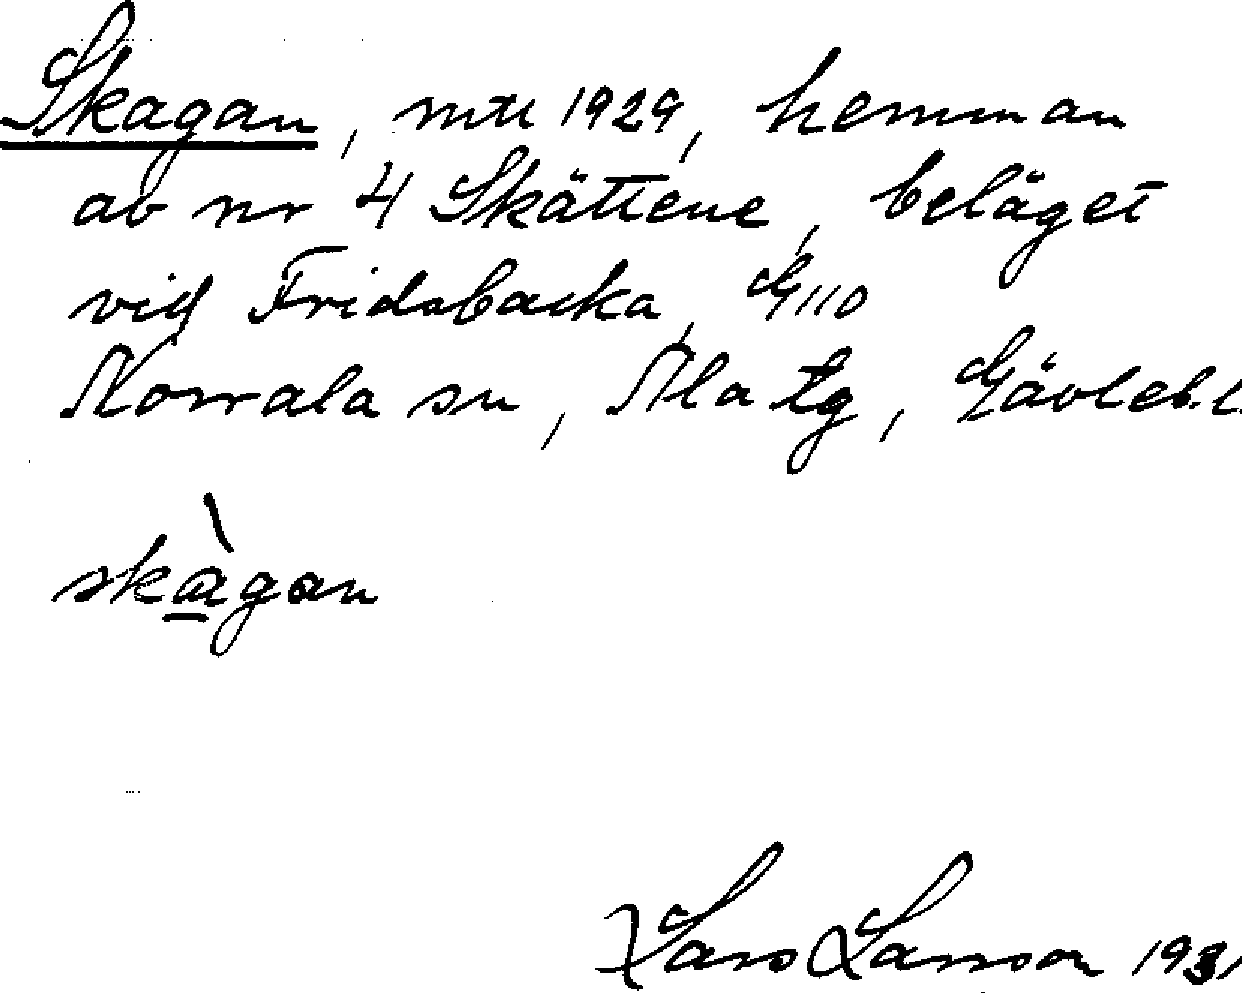 Skagan, mtl 1929, hemman
av nr 4 Skättene, beläget
vid Fridsbacka, G 110
Norrala sn, Ala tg, Gävleb. l.
skàgan
Lars Larsson 1931